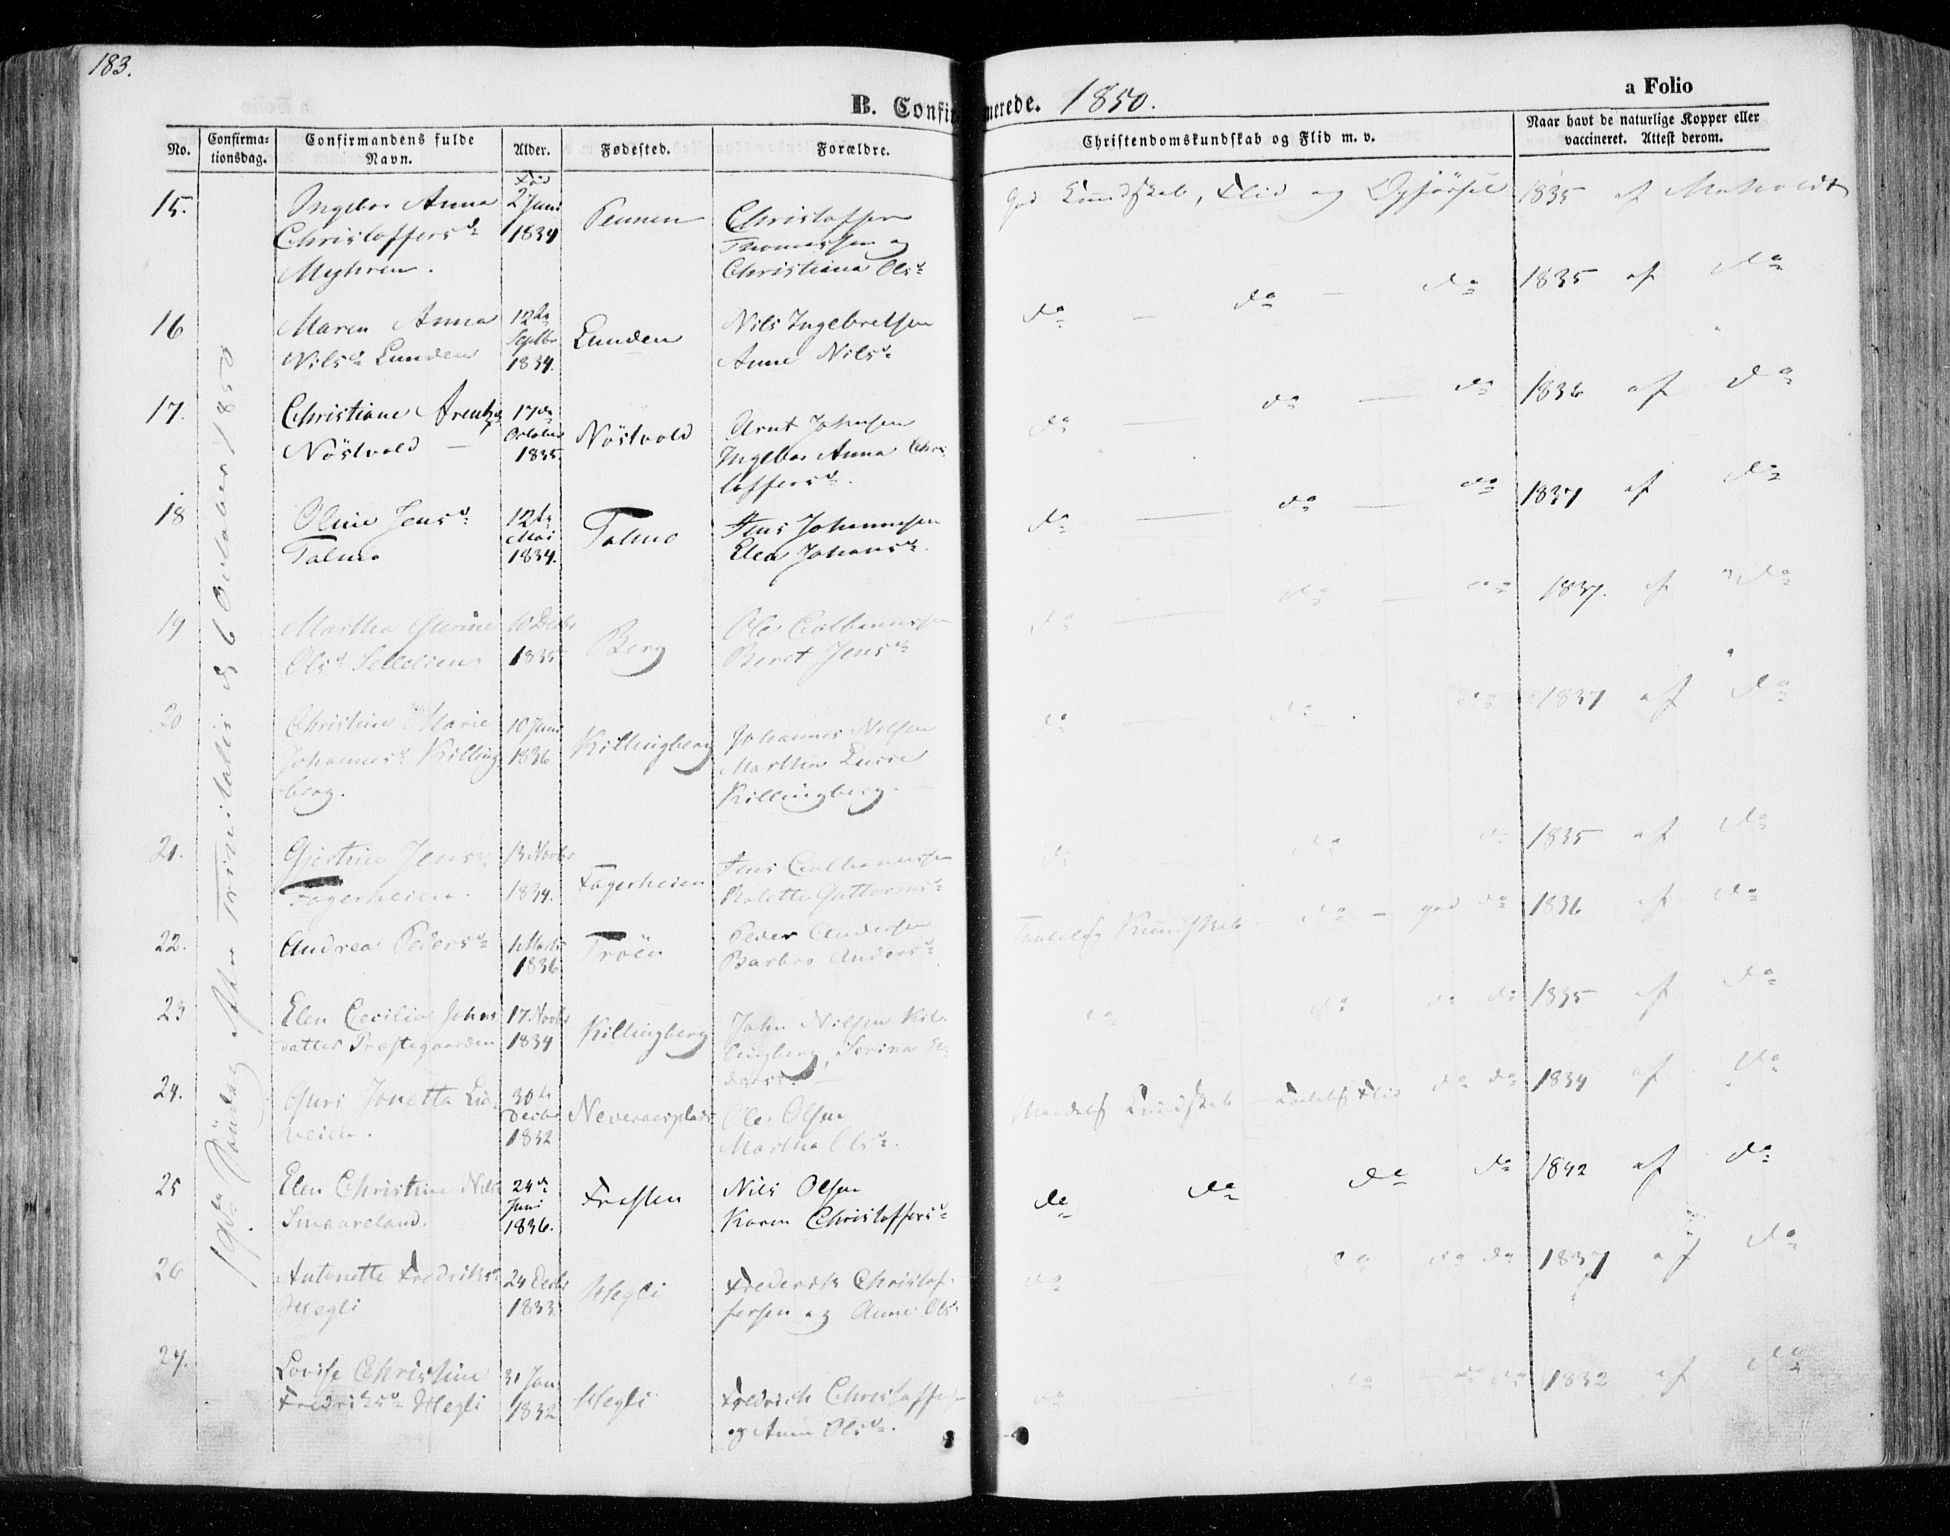 183.
B. Confirmerede. 1850.
a Folio
No.
Confirma-
tionsdag.
Confirmandens fulde
Navn.
Alder.
Fødested.
Forældre.
Christendomskundskab og Flid m. v.
Naar havt de naturlige Kopper eller
vaccineret. Attest derom.
19de Söndag efter Trinitatis d. 6 October 1850
15.
Ingebor Anna
Christoffersd
Myhren.
2 Juni
1834
Pennen
Christoffer
Thomassen og
Christiana Olsd
God Kundskab, Flid og Opførsel
1835 af
16
Maren Anna
Nilsd Lunden
12te
Septbr
1834.
Lunden
Nils Ingebretsen
Anne Nilsd
do — do — do
1835 af do
17.
Christiane
Nöstvold —
17de
October
1835.
Nöstvold
Arnt Johnsen
Ingebor Anna Chris
toffersd.
do — do — do
1836 af do
18
Oline Jensd
Talmo
12te
Mai
1834.
Talmo
Jens Johannesen
Elen Johansd.
do — do — do
1837 af do
19
Martha Gurine
Olsd
10 Decbr
1835
Berg
Ole
Beret Jensd
do — do — do
1837. af do
20
Christine Marie
Johannesd Killing
berg.
10 Juni
1836
Killingberg
Johannes Nilsen
Martha
Killingberg. —
do — do — do
1837 af do
21.
Gjertine Jensd
Fagerheien.
13 Novbr
1834.
Fagerheien
Jens
do do do
1835 af do
22.
Andrea Pedersd
1836
Tröen
Peder Andersen
Barbro Andersd
Taalelig Kundskab — do — god do
1836 af do
23
Elen Cecilia Johns
datter Præstegaarden
17. Novbr
1834
Killingberg
John Nilsen Kil-
lingberg, Serina Pe-
dersd. —
do do do do
1835 af do
24.
Guri Jonetta Lia
veien.
30te
Decbr
1832
Neveraesplads
Ole Olsen
Martha Olsd.
Kundskab — Taalelig Flid do do
1834 af do
25
Elen Christine Nilsd
Smaareland.
24de
Juni
1836.
Nils Olsen
Karen Christoffersd
do do do do
1842 af do
26
Antonette Fredriksd
Hegli
24 Decbr
1833.
Hegli
Frederik Christof-
fersen og Anne Olsd
do do do do
1837 af do
27.
Lovise Christine
Fredriksd Hegli
31 Jan
1832
Hegli
Fredrich Christoffersen
og Anne Olsd.
do do do do
1832 af do